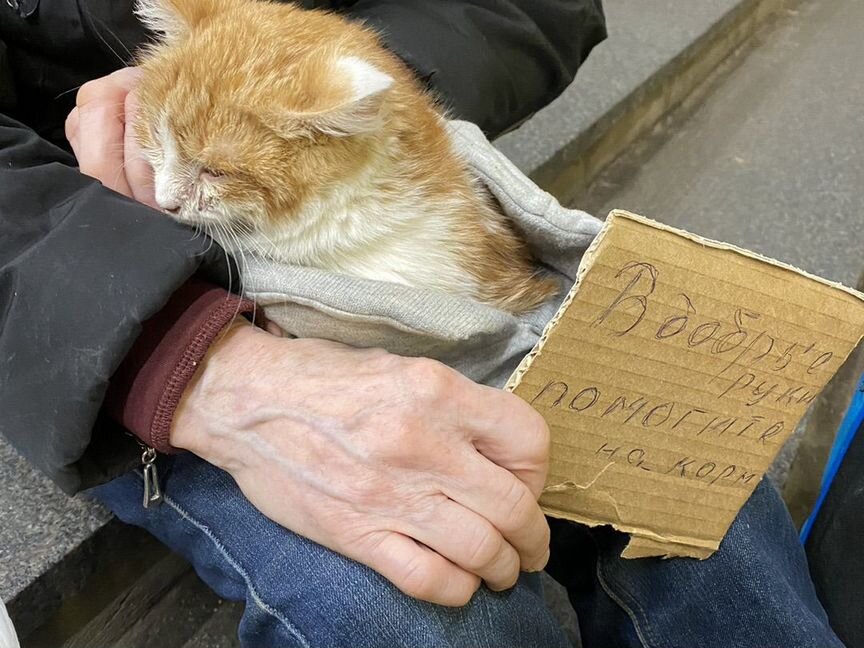 В добрые
руки
помогите
на корм